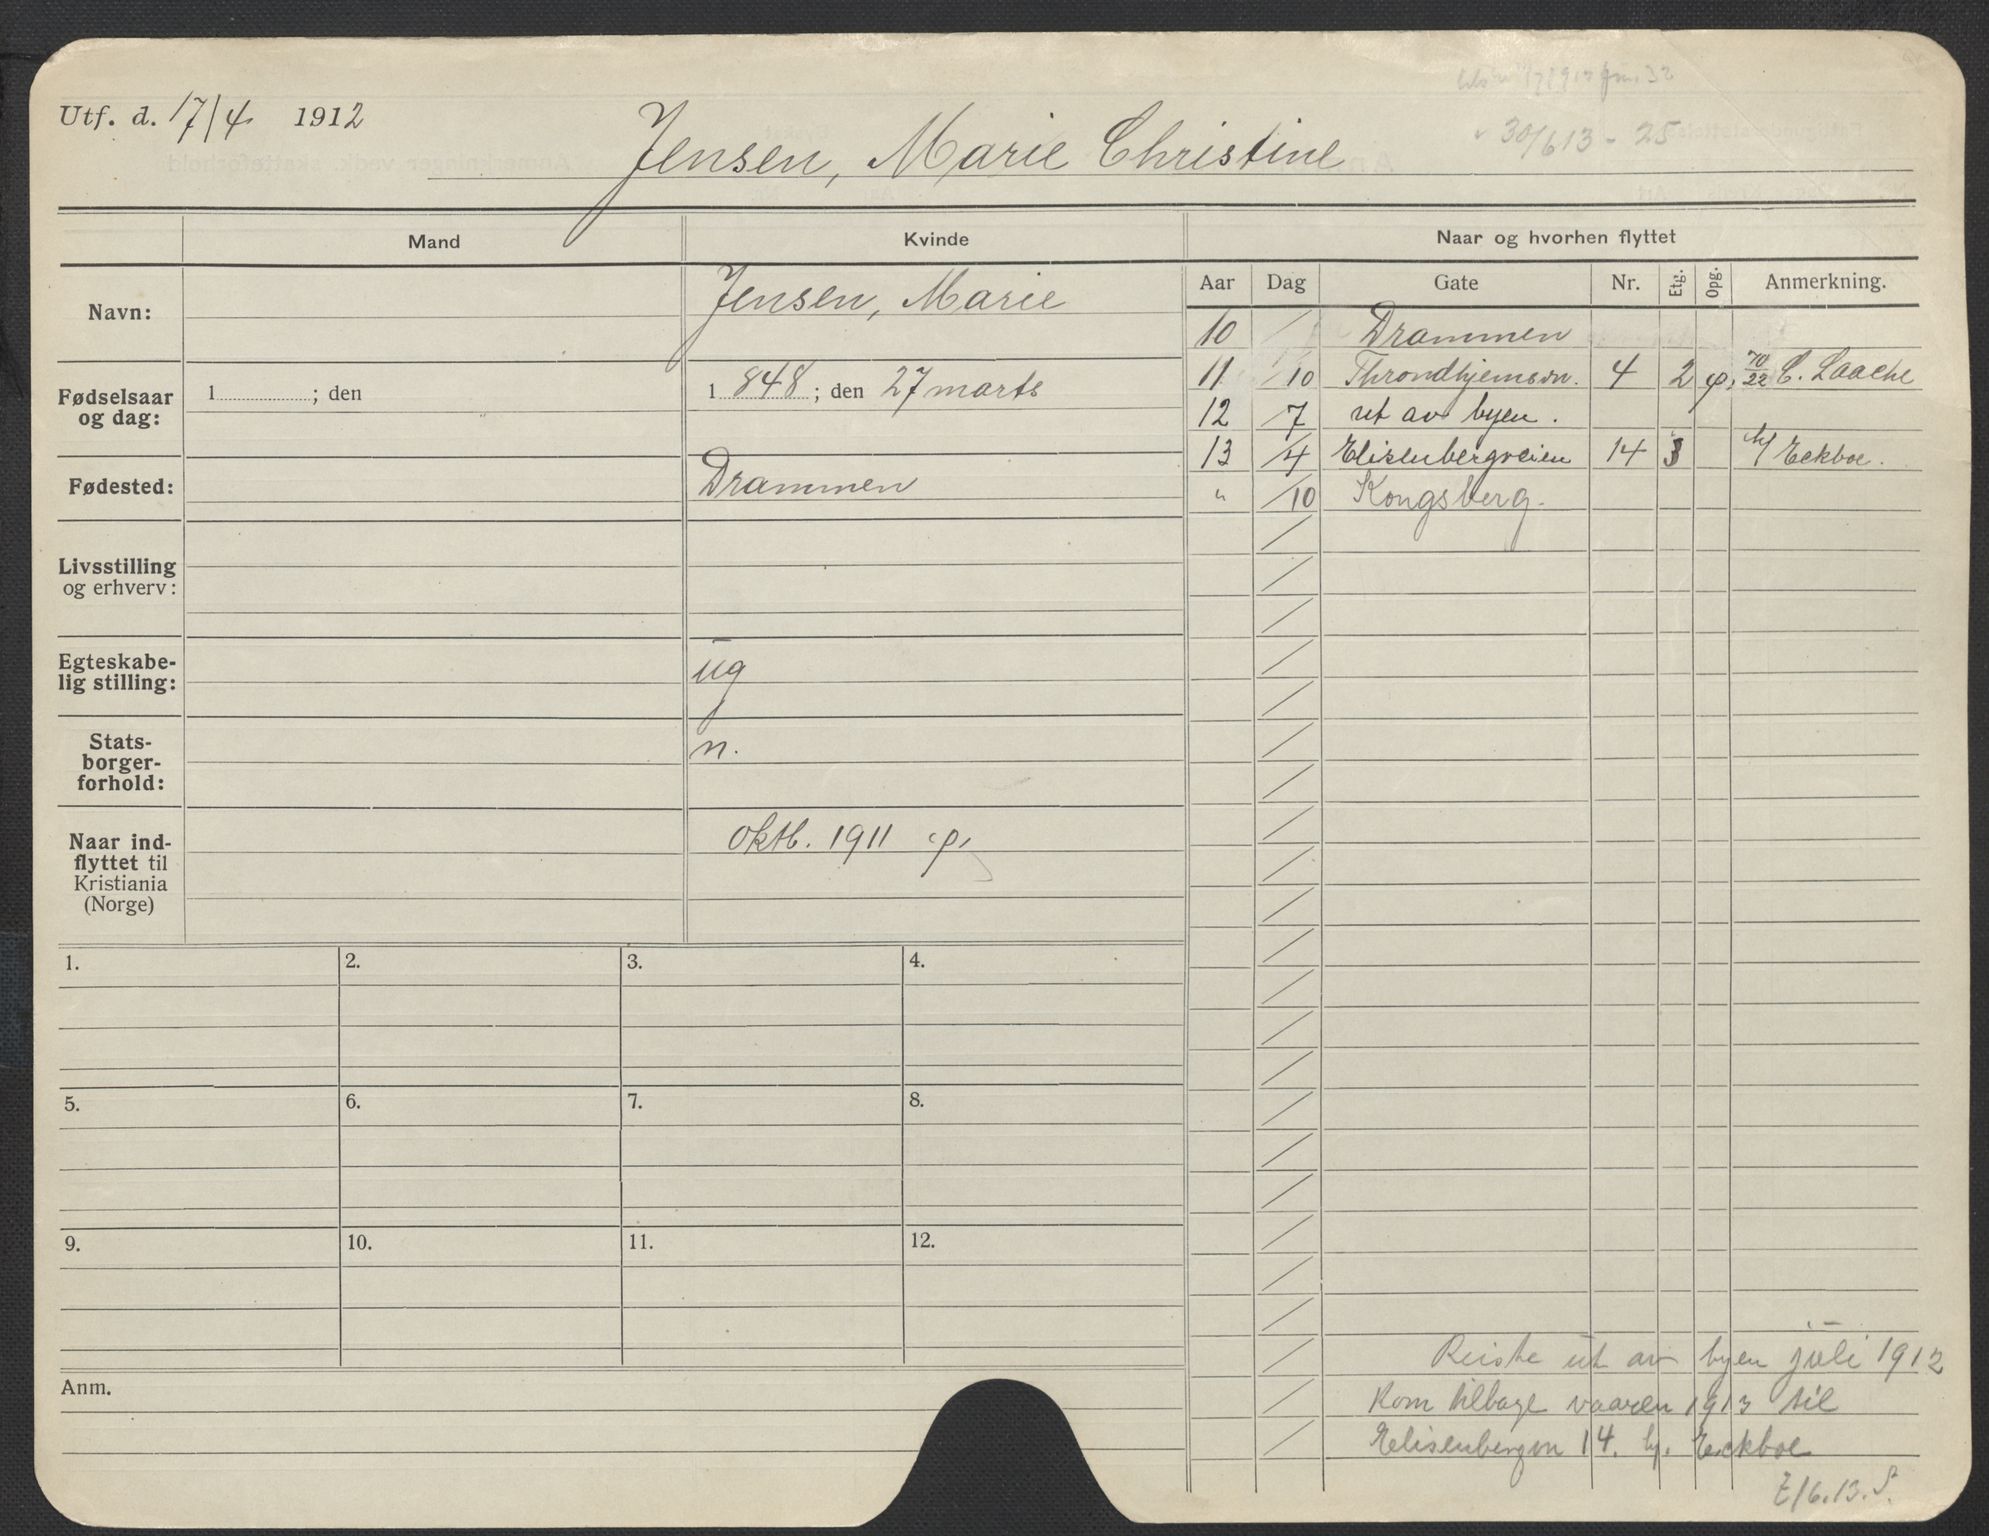 Utf. d. 17/4 1912
Jensen, Marie Christine
30/6 13 - 25
Mand
Kvinde
Naar og hvorhen flyttet
Aar Dag Gate Nr. Etg. Opg. Anmerkning.
Navn:
Jensen, Marie
Fødselsaar
og dag:
1 ; den
1 848 ; den 27 marts
Fødested:
Drammen
Livsstilling
og erhverv:
Egteskabe-
lig stilling:
ug
Stats-
borger-
forhold:
n.
Naar ind-
flyttet til
Kristiania
(Norge)
Oktb. 1911 φ,
10 / Drammen
11 /10 Throndhjemsvn. 4 2 φ, 70/22 C. Laache
12 /7 ut av byen.
13 /4 Elisenbergveien 14 3 h/ Eckboe.
" /10 Kongsberg.
1.
2.
3.
4.
5.
6.
7.
8.
9.
10.
11.
12.
Anm.
Reiste ut av byen juli 1912
Kom tilbage vaaren 1913 til
Elisenbergvn 14. hj. Eckboe
/6.13. S.